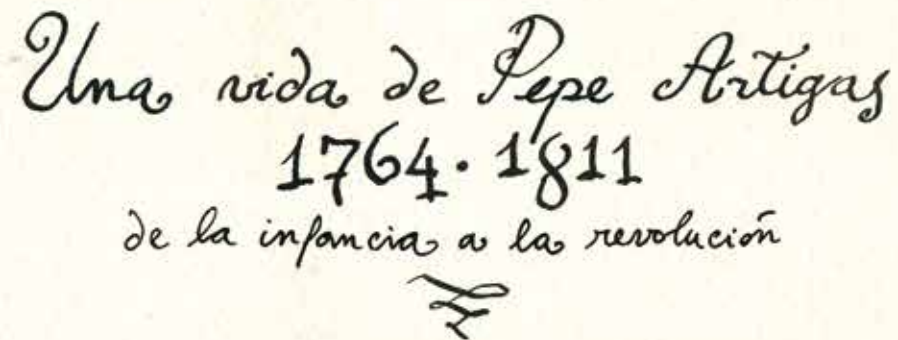 Una vida de Pepe Artigas
1764·1811
de la infancia a la revolución